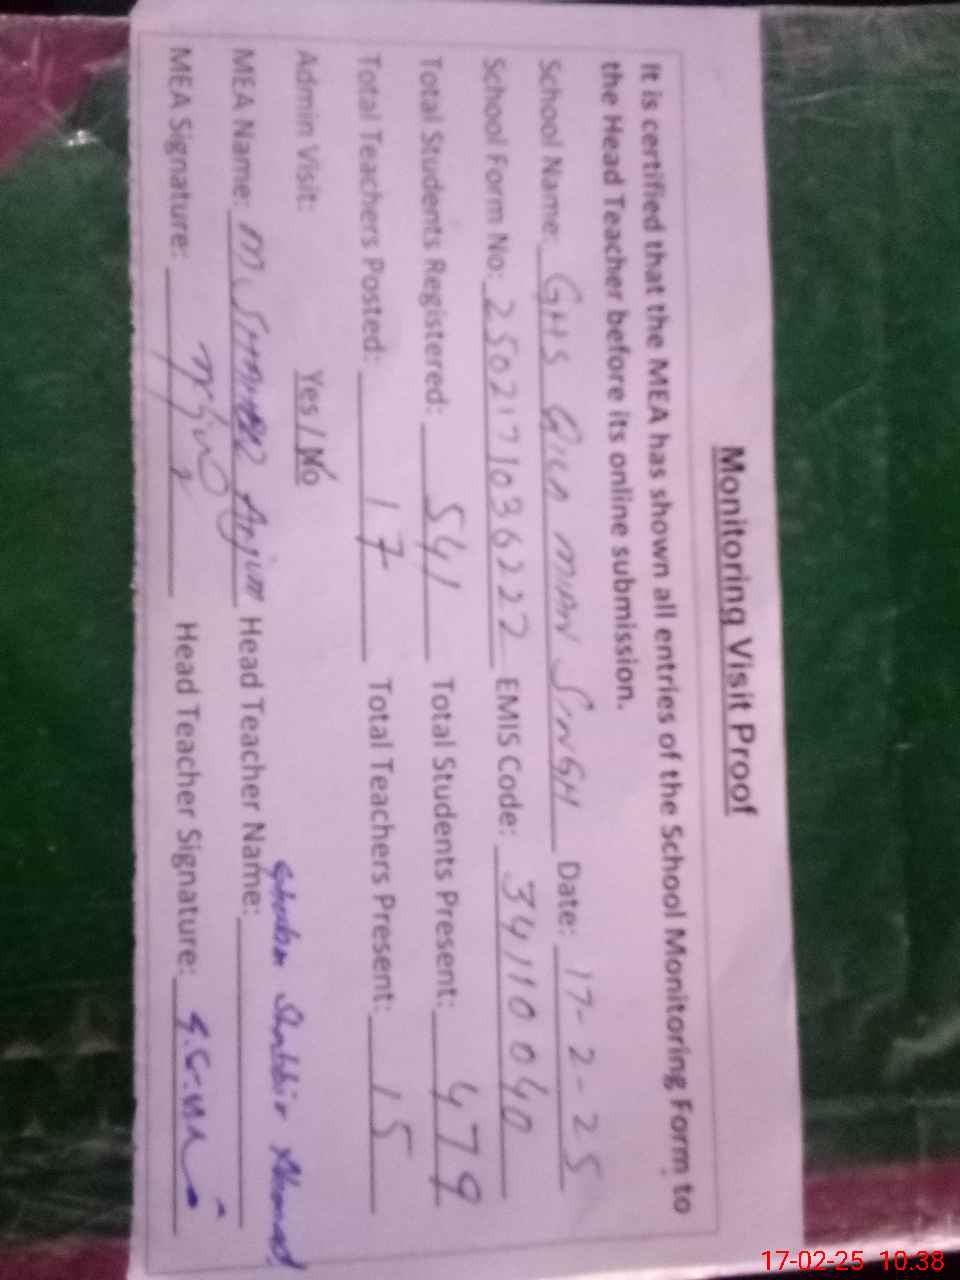 Monitoring Visit Proof
It is certified that the MEA has shown all entries of the School Monitoring Form to
the Head Teacher before its online submission.
School Name: GHS Qila MIAN SINGH Date: 17-2-25
School Form No: 2502171036222 EMIS Code: 34110040
Total Students Registered: 541 Total Students Present: 479
Total Teachers Posted: 17 Total Teachers Present: 15
Admin Visit: Yes / No
MEA Name: M. Anjum Head Teacher Name: Ghulam Shabbir Ahmad
MEA Signature: Head Teacher Signature:
17-02-25 10:38